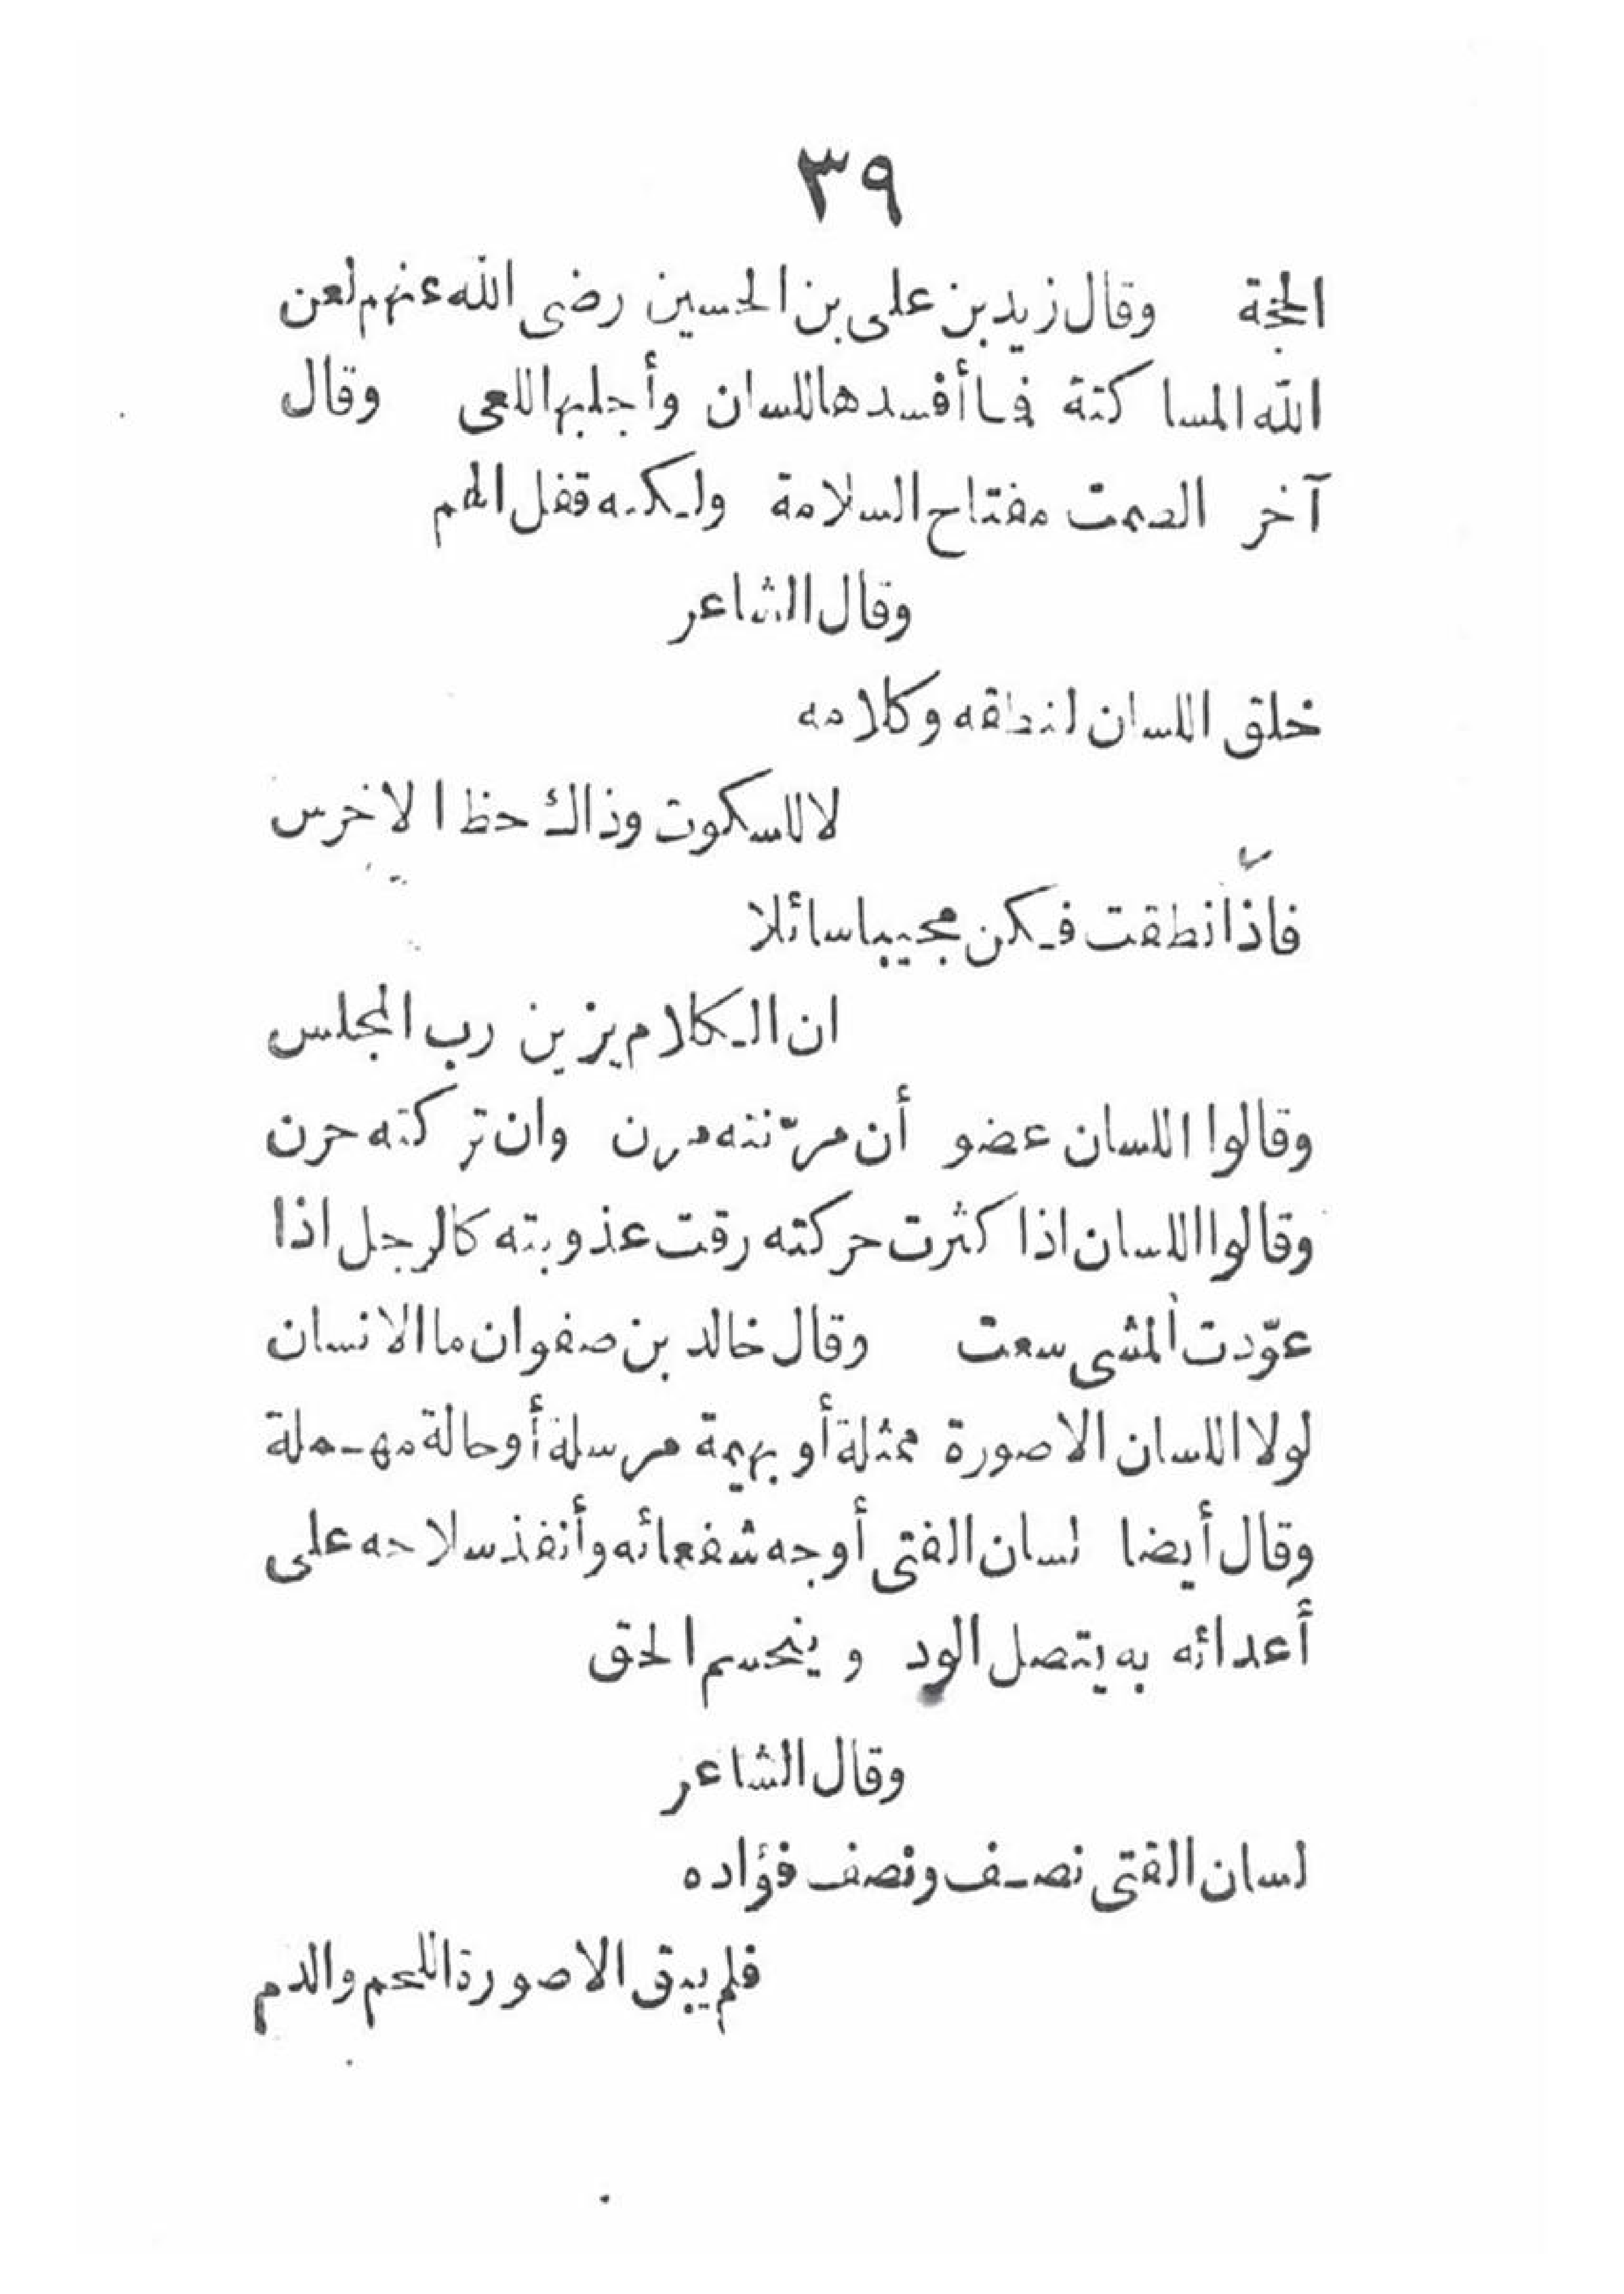 ٣٩
الجنة وقال زيد بن على بن الحسين رضى الله عنهم لعن
الله المساكتة فما أفسدها للسان وأجلبها للعى وقال
آخر الصمت مفتاح السلامة ولكنه قفل الهم
وقال الشاعر
خلق اللسان لنطقه وكلامه
لا للسكوت وذاك حظ الاخرس
فاذا نطقت فكن مجيبا سائلا
ان الكلام يزين رب المجلس
وقالوا اللسان عضو أن مرّنته مرن وان تركته حرن
وقالوا اللسان اذا كثرت حركته رقت عذوبته كالرجل اذا
عوّدت المشى سعت وقال خالد بن صفوان ما الانسان
لولا اللسان الا صورة ممثلة أو بهيمة مرسلة أو حالة مهملة
وقال أيضا لسان الفتى أوجه شفعائه وأنفذ سلاحه على
أعدائه به يتصل الود و ينحسم الحق
وقال الشاعر
لسان الفتى نصف ونصف فؤاده
فلم يبق الا صورة اللحم والدم